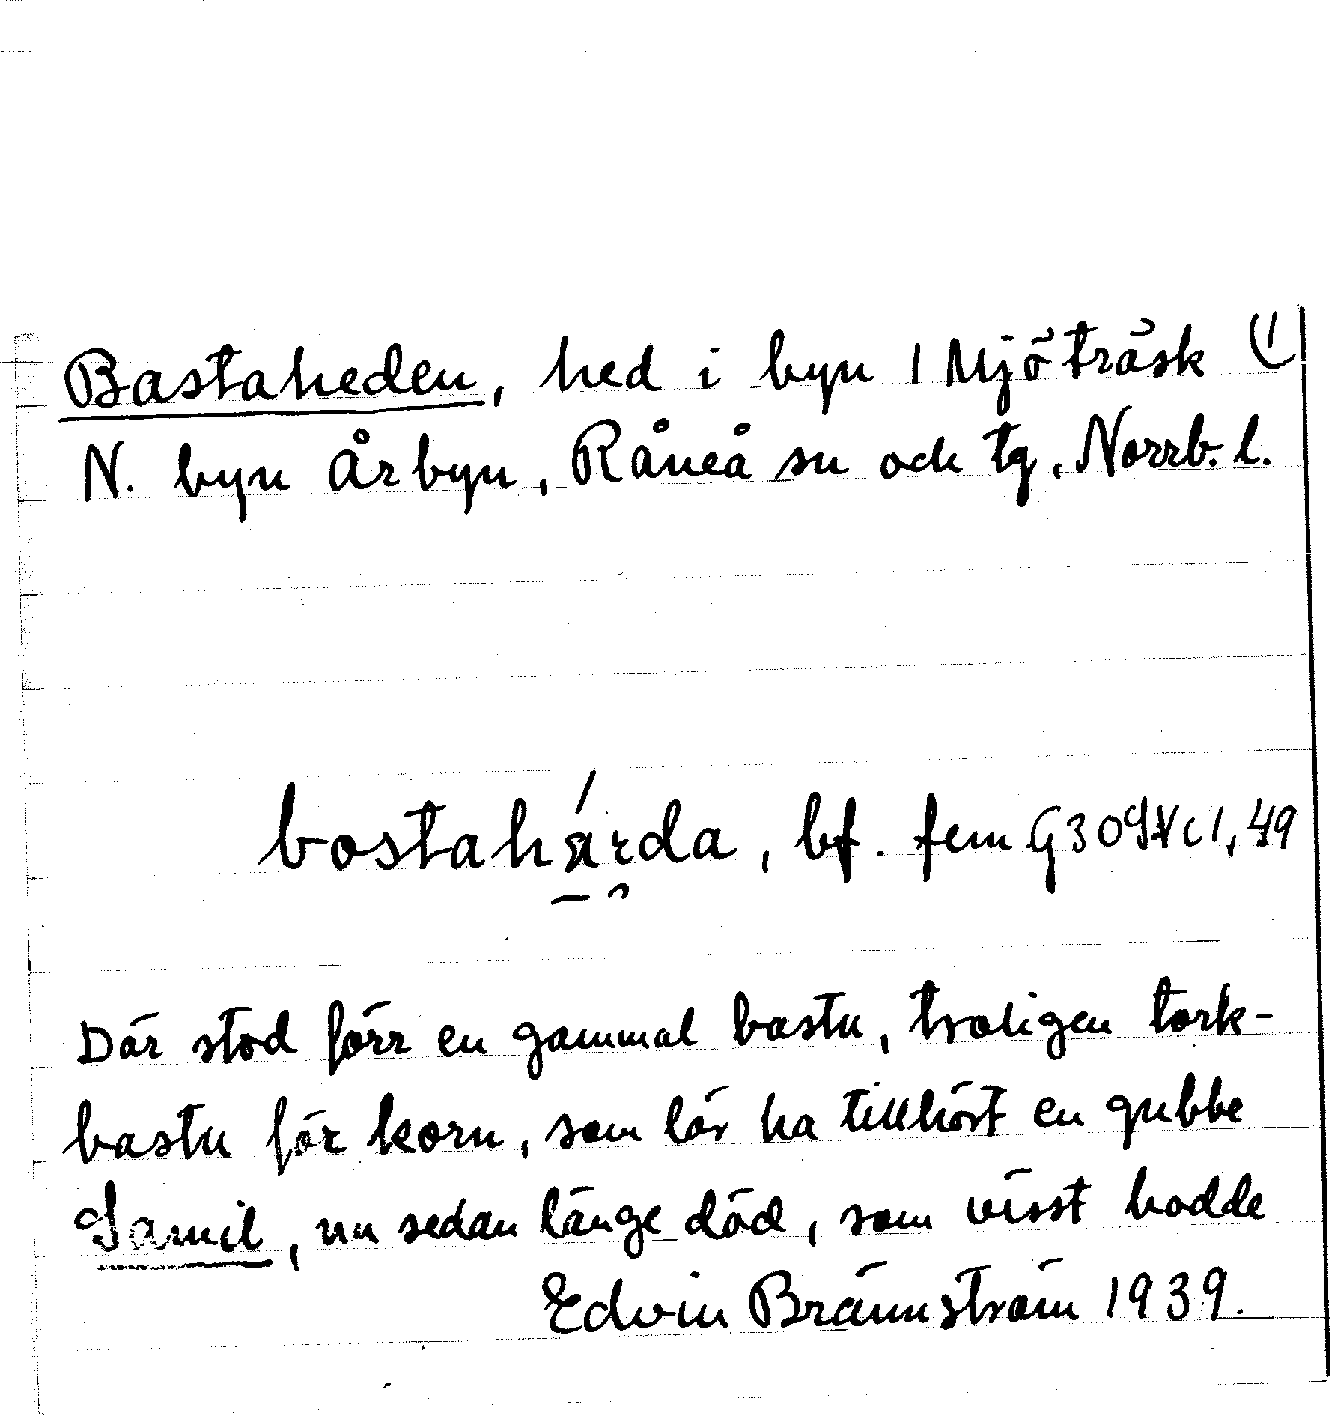 Bastaheden, hed i byn 1 Mjöträsk (1
N. byn Årbyn, Råneå sn och tg, Norrb. l.
bostahärda, bf. fem
Där stod förr en gammal bastu, troligen tork-
bastu för korn, som lär ha tillhört en gubbe
Samil, nu sedan länge död, som visst bodde
Edvin Brännström 1939.